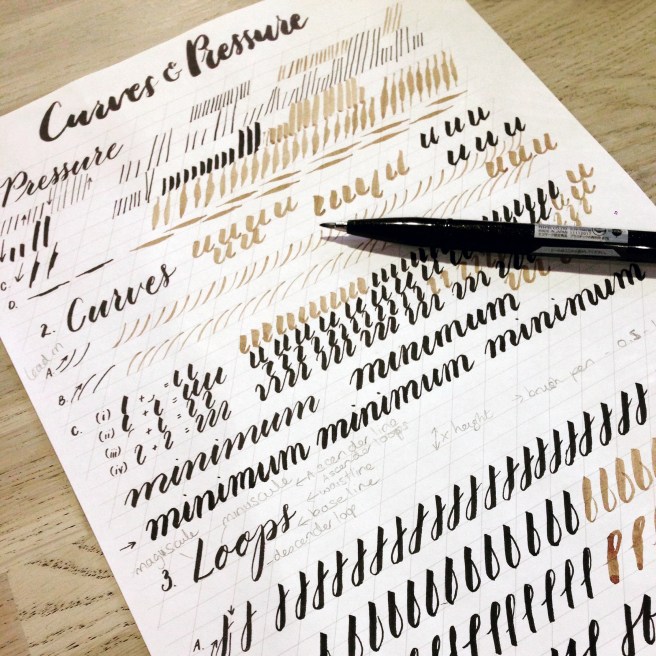 Curves & Pressure
Pressure
C.
D.
2. Curves
lead in
A.
B.
C. (i)
(ii)
(iii)
(iv)
minimum minimum
→ minimum minimum minimum
majuscule
minuscule
Ascender line
Ascender loops
waistline
baseline
descender loop
x height
→ brush pen - 0.5
3. Loops
A.